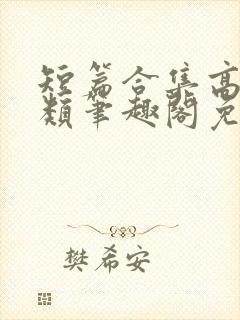 短篇合集高
类笔趣阁免
樊希安